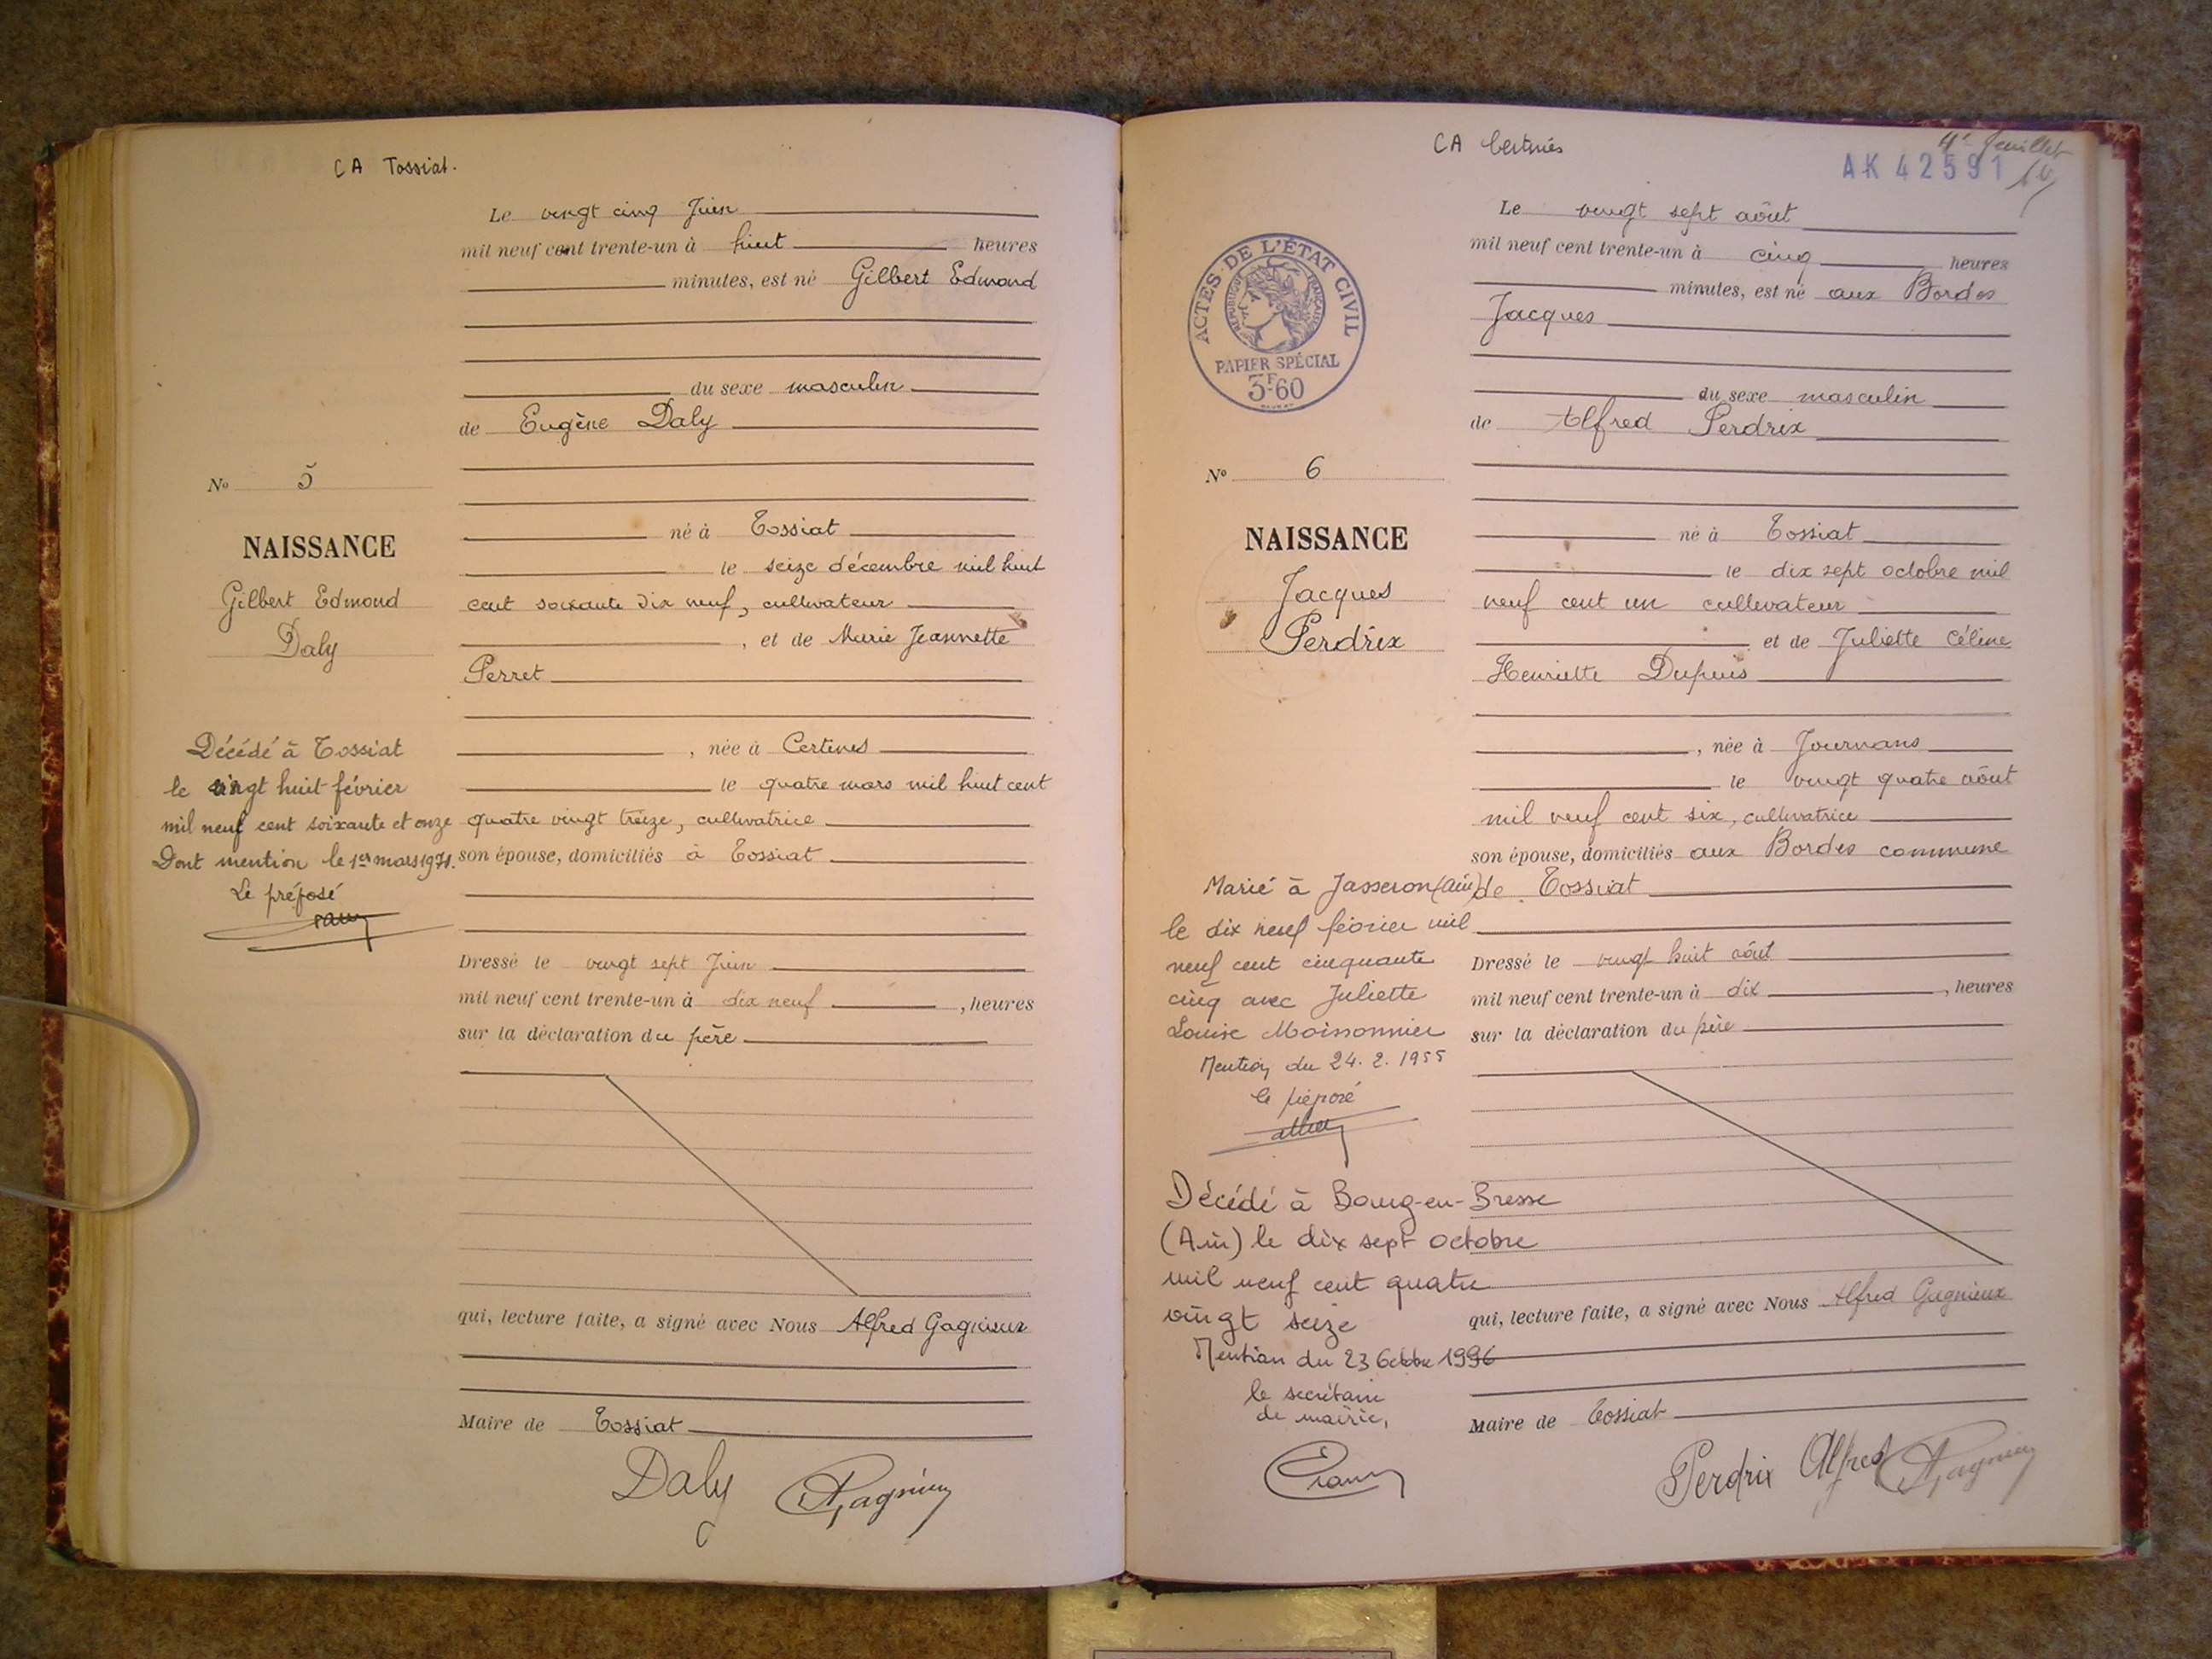 CA Tossiat.
Le vingt cinq Juin
mil neuf cent trente-un à huit heures
minutes, est né Gilbert Edmond
du sexe masculin
de Eugène Daly
né à Tossiat
le seize décembre mil huit
cent soixante dix neuf, cultivateur
, et de Marie Jeannette
Perret
, née à Certines
le quatre mars mil huit cent
quatre vingt treize, cultivatrice
son épouse, domiciliés à Tossiat
Dressé le vingt sept Juin
mil neuf cent trente-un à dix neuf , heures
sur la déclaration du père
qui, lecture faite, a signé avec Nous Alfred Gagnieux
Maire de Tossiat
Daly AGagnieux
No 5
NAISSANCE
Gilbert Edmond
Daly
Décédé à Tossiat
le vingt huit février
mil neuf cent soixante et onze
Dont mention le 1er mars 1971.
Le préposé
CA Certines
4e feuillet
AK 42591
ACTES DE L'ÉTAT CIVIL
RÉPUBLIQUE FRANÇAISE
PAPIER SPÉCIAL
3F60
Le vingt sept août
mil neuf cent trente-un à cinq heures
minutes, est né aux Bordes
Jacques
du sexe masculin
de Alfred Perdrix
né à Tossiat
le dix sept octobre mil
neuf cent un cultivateur
et de Juliette Céline
Henriette Dupuis
, née à Journans
le vingt quatre août
mil neuf cent six, cultivatrice
son épouse, domiciliés aux Bordes commune
de Tossiat
Dressé le vingt huit août
mil neuf cent trente-un à dix , heures
sur la déclaration du père
qui, lecture faite, a signé avec Nous Alfred Gagnieux
Maire de Tossiat
Perdrix Alfred AGagnieux
No 6
NAISSANCE
Jacques
Perdrix
Marié à Jasseron (Ain)
le dix neuf février mil
neuf cent cinquante
cinq avec Juliette
Louise Moissonnier
Mention du 24.2.1955
le préposé
Décédé à Bourg-en-Bresse
(Ain) le dix sept octobre
mil neuf cent quatre
vingt seize
Mention du 23 Octobre 1996
le secrétaire
de mairie,